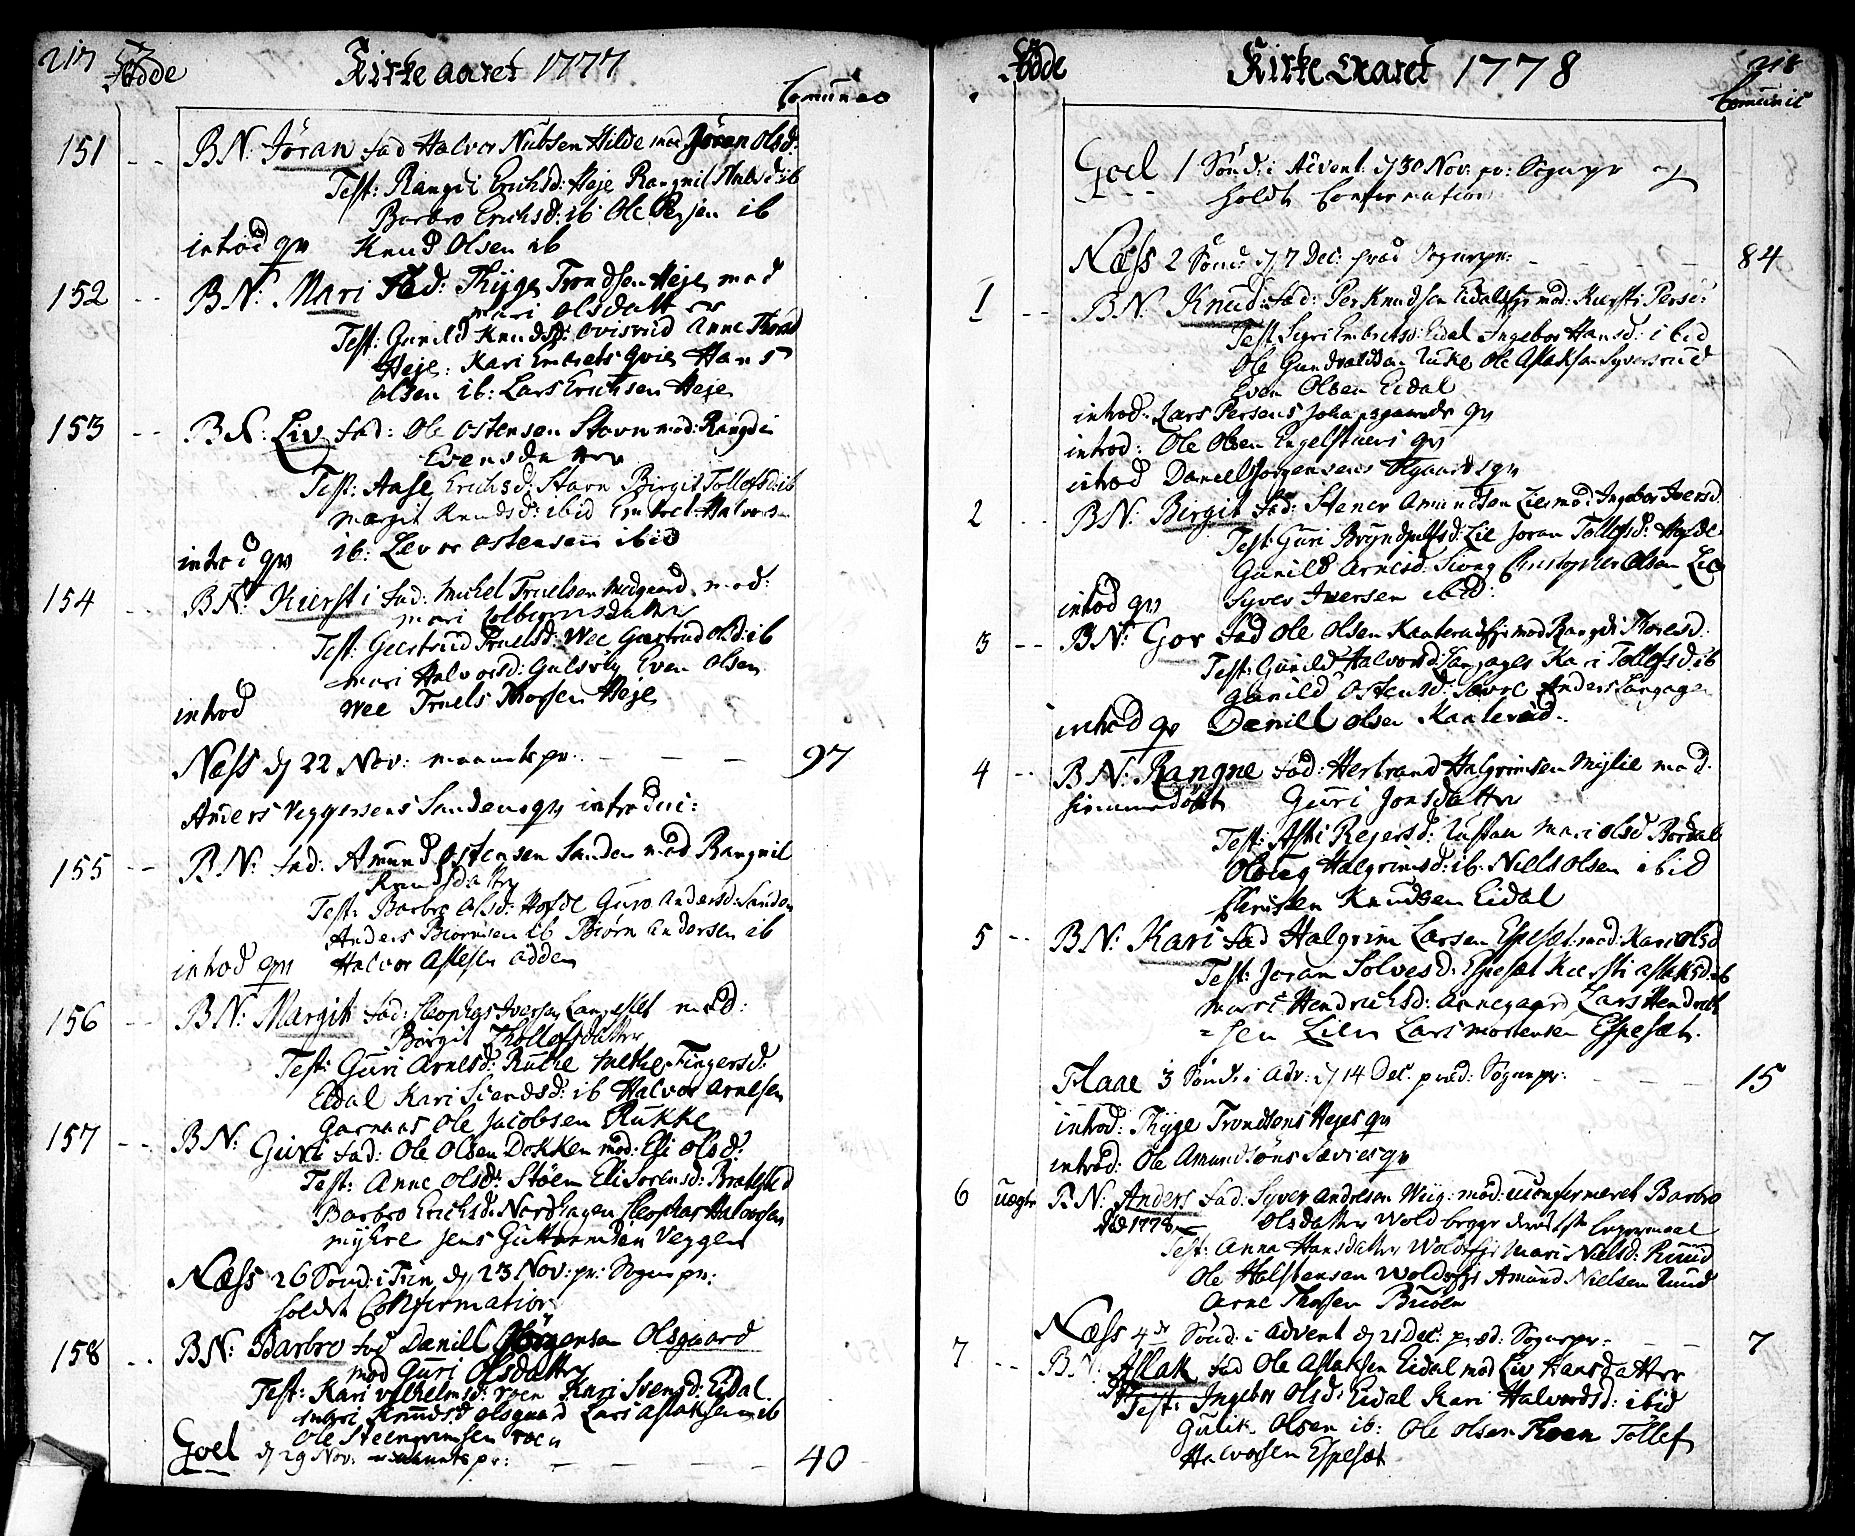 217 Fødde Kirke aaret 1777
Comunic
151 -- BN: Jöran fad Halvor Nubsen Hilde mod Jöran Olsd:
Test: Rangdi Erichsd: Heje Rangnil ib
Barbro Erichsd: ib Ole ib
introd qv Knud Olsen ib
152 -- BN: Mari Fad: Thyge Trondsen Heje mod
Mari Olsdatter
Test: Gunild Knudsd: Ovisrud Anne
Heje: Kari Embrets Hans
Olsen ib: Lars Erichsen Heje
153 -- BN: Liv fad: Ole Ostensen Stavn mod: Rangdi
Evensdatter
Test: Aase Erichsd: Stavn Birgit Tollefsd: ib
Margit Knudsd: ibid Embret Halvorsen
introd qv ib: Levor Ostensen ibid
154 -- BN: Kiersti fad: Michel Truelsen Midgaard mod:
Mari Colbiornsdatter
Test: Geertrud Truelsd: Wee Geertrud Olsd: ib
Mari Halvorsd: Gulsvig Even Olsen
introd Wee Truels Thorsen Heje
Næss d 22 Nov: maanetspr: - - - 97
Anders Veggersens Sandens qv introduc:
155 -- BN: fad: Amund Ostensen Sanden mod Rangnil
Knudsdatter
Test: Barbro Olsd: Hofde Guro Andersd: Sanden
Anders Biornsen ib Biörn Andersen ib
introd qv Halvor Aslesen Odden
156 -- BN: Margit fad: Cleophas Iversen Langeslet mod:
Birgit Thollefsdatter
Test: Guri Arnesd: Rukke Methe Fingersd:
Eidal Kari Svendsd: ib Halvor Arnesen
Garnaas Ole Jacobsen Rukke
157 -- BN: Guri fad: Ole Olsen Dokken mod: Eli Olsd:
Test: Anne Olsd: Stöen Eli Sorensd:
Barbro Erichsd: Nordhagen Cleophas Halvorsen
Myhre Jens Guttormsen Veggen
Næss 26 Sönd: i Trin d 23 Nov: pr: Sognepr:
holdt Confirmation
158 -- BN: Barbro fad Daniel Jörgensen Olsgaard
mod Guri Olsdatter
Test: Kari Vilhelmsd: roen Kari Svensd: Eidal
Mari Knudsd Olsgaard Lars Aslaksen ib
Ole Steengrimsen roen
Goel d 29 Nov: maanetspr: - - - 40
Fødde Kirke Aaret 1778 218
Comunic
Goel 1 Sönd: i Advent d 30 Nov: pr: Sognepr og
holdt Confirmation
Næss 2 Sönd: d 7 Dec: præd Sognepr: - - - 84
1 -- BN: Knud fad: Per Knudsen Eidalsejer mod: Kiersti Persd:
Test Sigri Embretsd: Eidal Ingebor Hansd: ibid
Ole Gundvaldsen Rukke Ole Aslaksen Syversrud
Even Olsen Eidal
introd: Lars Persens Johansgaards qv
introd: Ole Olsen Engelstueei qv
introd Daniel Jorgensens Olsgaards qv
2 -- BN: Birgit fad: Stener Amundsen Lie mod: Ingebor Iversd
Test: Guri Bryndjulfsd: Lie Joran Tollefsd: Hofde
Gunild Arnesd: Christopher Olsen Lie
introd qv Syver Iversen ibid:
3 -- BN: Gro fad Ole Olsen Kaaterudejer mod Rangdi Thoresd:
Test: Gunild Halvorsd: Langagen Kari Tollefsd: ib
Gunild Ostensd: Sevre Anders Langagen
introd qv Daniel Olsen Kaaterud:
4 -- BN: Rangne fad: Herbrand Halgrimsen Myhre mod:
hjemmedöbt Guri Jonsdatter
Test: Asti Rejersd: Rustan Mari Olsd Bordal
Oloug Halgrimsd: ib: Niels Olsen ibid
Christen Knudsen Eidal
5 -- BN: Kari fad Halgrim Larsen Espeset: mod: Kari Olsd
Test: Joran Solvesd: Espeset Kiersti Aslaksd: ib
Marit Hendrichsd: Annegaard Lars Hendrich
=sen Lien Lars Mortensen Espeset.
Flaae 3 Sönd: i Adv: d 14 Dec: præd: Sognepr: - - - 15
introd: Thyge Trondsens Hejes qv
introd: Ole Amundsöns Sævres qv
6 uægte BN: Anders fad: Syver Andresen Wiig: mod: uconfermeret Barbro
död 1778 Olsdatter Wold begge deris 1ste Lejermaal
Test: Anna Hansdatter Woldsejer Mari Nielsd: Ruud
Ole Halstensen Woldsejer Amund Nielsen Ruud
Arne Thorsen Bruöen
Næss 4de Sönd: i Advent d 21 Dec: præd: Sognepr: - - - 7
7 -- BN: Aslak fad Ole Aslaksen Eidal mod Liv Hansdatter
Test: Ingebor Olsd: Eidal Kari Halvorsd: ibid
Gulik Olsen ib: Ole Olsen Roen Tollef
Halvorsen Espeset